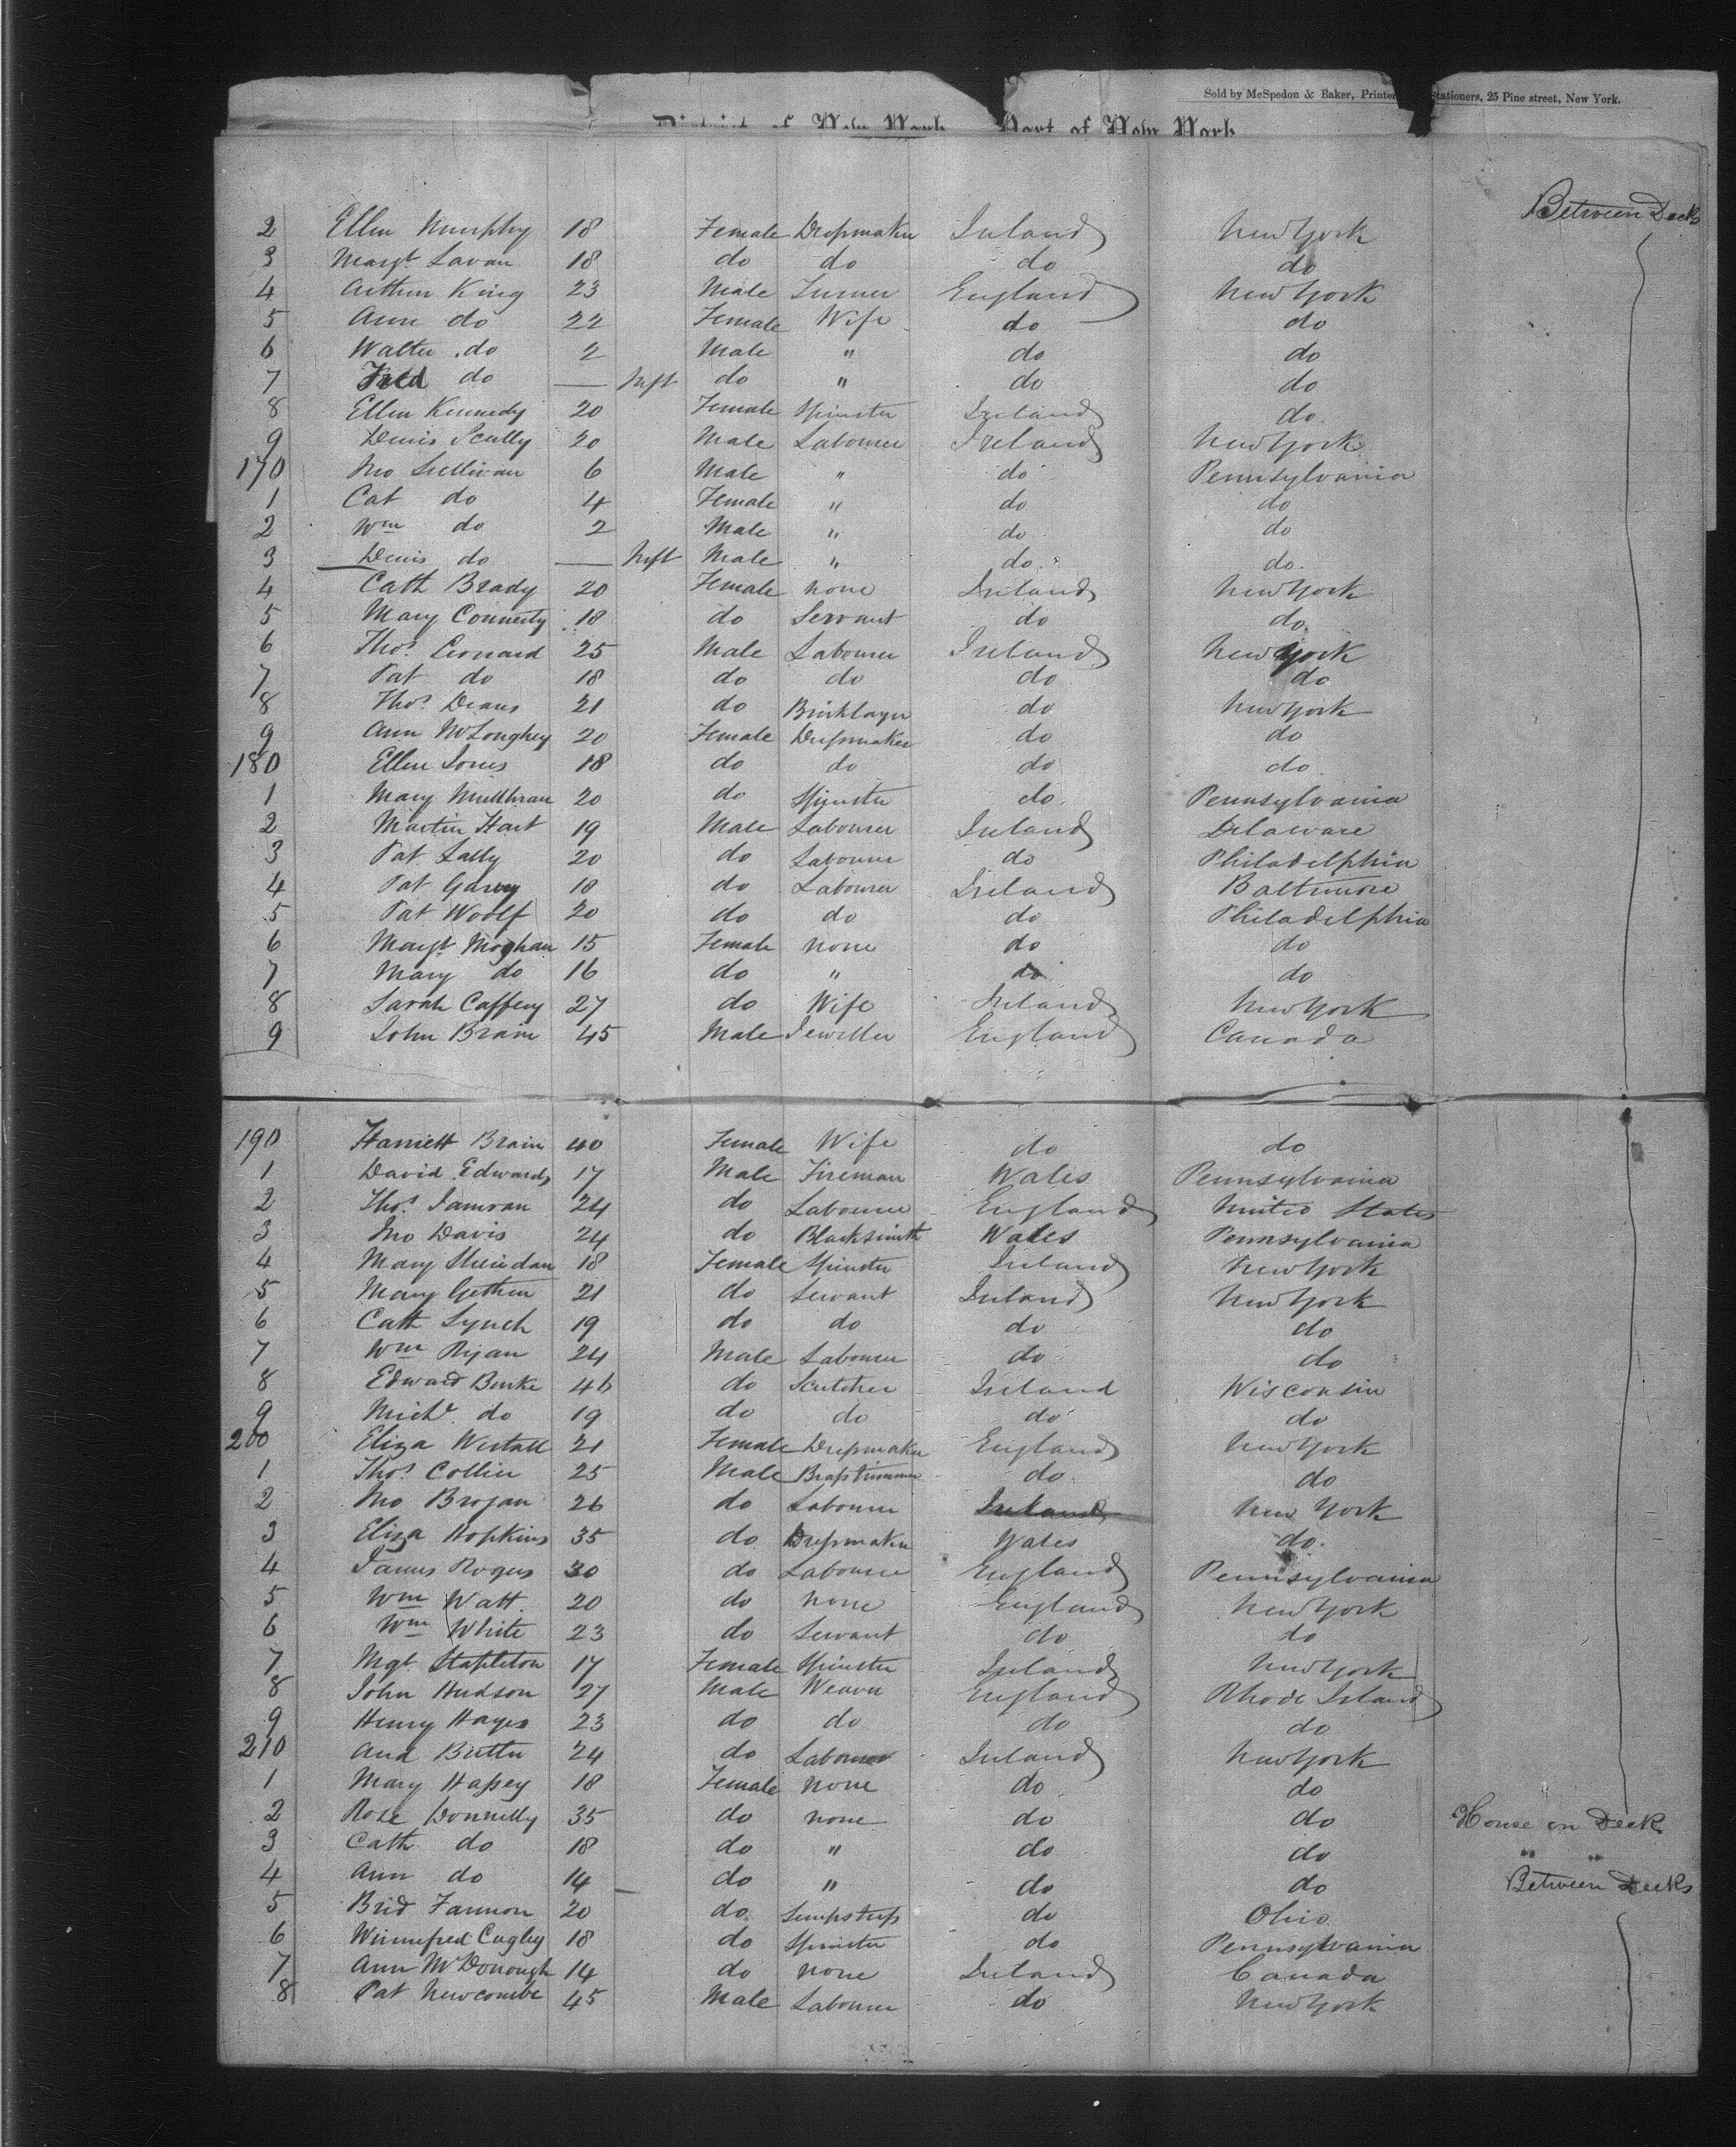 Sold by McSpedon & Baker, Printer Stationers, 25 Pine street, New York.
District of New York Port of New York
Between Decks
2 Ellen Murphy 18 Female Dressmaker Ireland New York
3 Margt Lavan 18 do do do do
4 Arthur King 23 Male Turner England New York
5 Ann do 22 Female Wife do do
6 Walter do 2 Male " do do
7 Fred do — Inft do " do do
8 Ellen Kennedy 20 Female Spinster Ireland do
9 Denis Scully 20 Male Labourer Ireland New York
170 Jno Sullivan 6 Male " do Pennsylvania
1 Cat do 4 Female " do do
2 Wm do 2 Male " do do
3 Denis do — Inft Male " do do
4 Cath Brady 20 Female none Ireland New York
5 Mary Connerty 18 do Servant do do
6 Thos. Leonard 25 Male Labourer Ireland New York
7 Pat do 18 do do do do
8 Thos. Deans 21 do Bricklayer do New York
9 Ann McLonghey 20 Female Dressmaker do do
180 Ellen Jones 18 do do do do
1 Mary 20 do Spinster do Pennsylvania
2 Martin Hart 19 Male Labourer Ireland Delaware
3 Pat Lally 20 do Labourer do Philadelphia
4 Pat Garvy 18 do Labourer Ireland Baltimore
5 Pat Woolf 20 do do do Philadelphia
6 Margt Moghan 15 Female none do do
7 Mary do 16 do " do do
8 Sarah Caffery 27 do Wife Ireland New York
9 John Brain 45 Male Jeweller England Canada
190 Harriett Brain 40 Female Wife do do
1 David Edwards 17 Male Fireman Wales Pennsylvania
2 Thos. 24 do Labourer England United States
3 Jno Davis 24 do Blacksmith Wales Pennsylvania
4 Mary Sheridan 18 Female Spinster Ireland New York
5 Mary Gethin 21 do Servant Ireland New York
6 Cath Lynch 19 do do do do
7 Wm Ryan 24 Male Labourer do do
8 Edward Burke 46 do Scutcher Ireland Wisconsin
9 Michl do 19 do do do do
200 Eliza Westall 21 Female Dressmaker England New York
1 Thos. Collier 25 Male Brasstrimmer do do
2 Jno Brogan 26 do Labourer Ireland New York
3 Eliza Hopkins 35 do Dressmaker Wales do
4 James Rogers 30 do Labourer England Pennsylvania
5 Wm Watt 20 do none England New York
6 Wm White 23 do Servant do do
7 Mgt. Stapleton 17 Female Spinster Ireland New York
8 John Hudson 27 Male Weaver England Rhode Island
9 Henry Hayes 23 do do do do
210 And Butler 24 do Labourer Ireland New York
1 Mary Hassey 18 Female none do do
2 Rose Donnelly 35 do none do do House on Deck
3 Cath do 18 do " do do " "
4 Ann do 14 do " do do Between Decks
5 Brid Fannon 20 do Sempstress do Ohio
6 Winnefred Cugley 18 do Spinster do Pennsylvania
7 Ann McDonough 14 do none Ireland Canada
8 Pat Newcombe 45 Male Labourer do New York